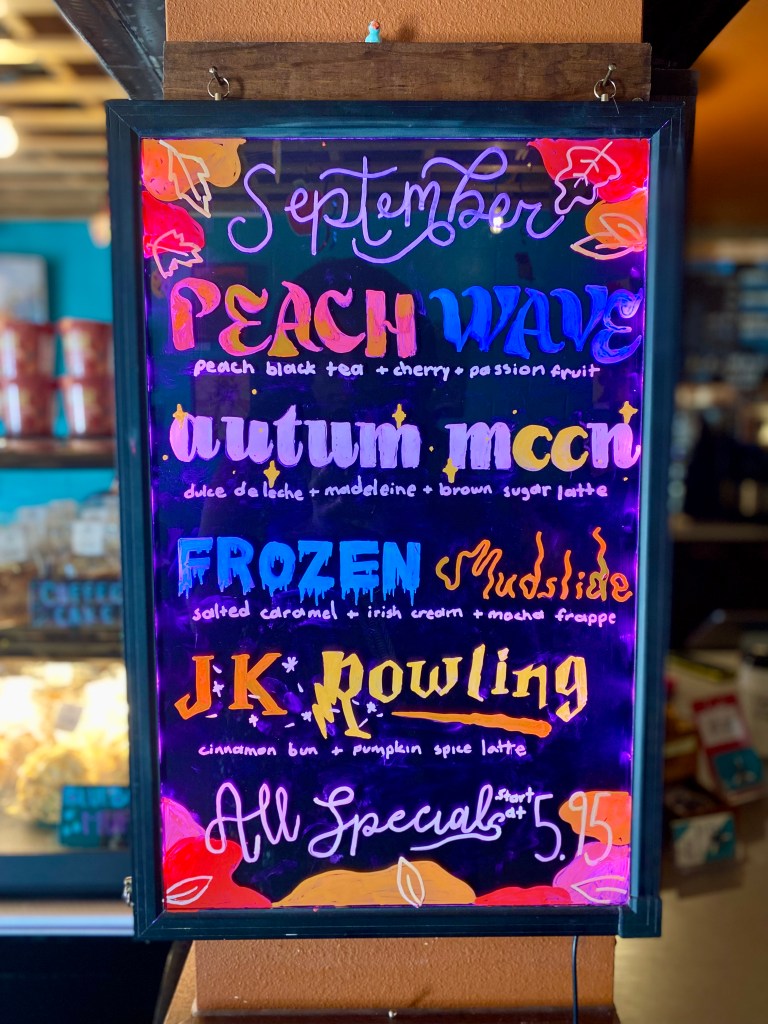 September
PEACH WAVE
peach black tea + cherry + passion fruit
autum moon
dulce de leche + madeleine + brown sugar latte
FROZEN Mudslide
salted caramel + irish cream + mocha frappe
JK Rowling
cinnamon bun + pumpkin spice latte
All Specials start at 5.95